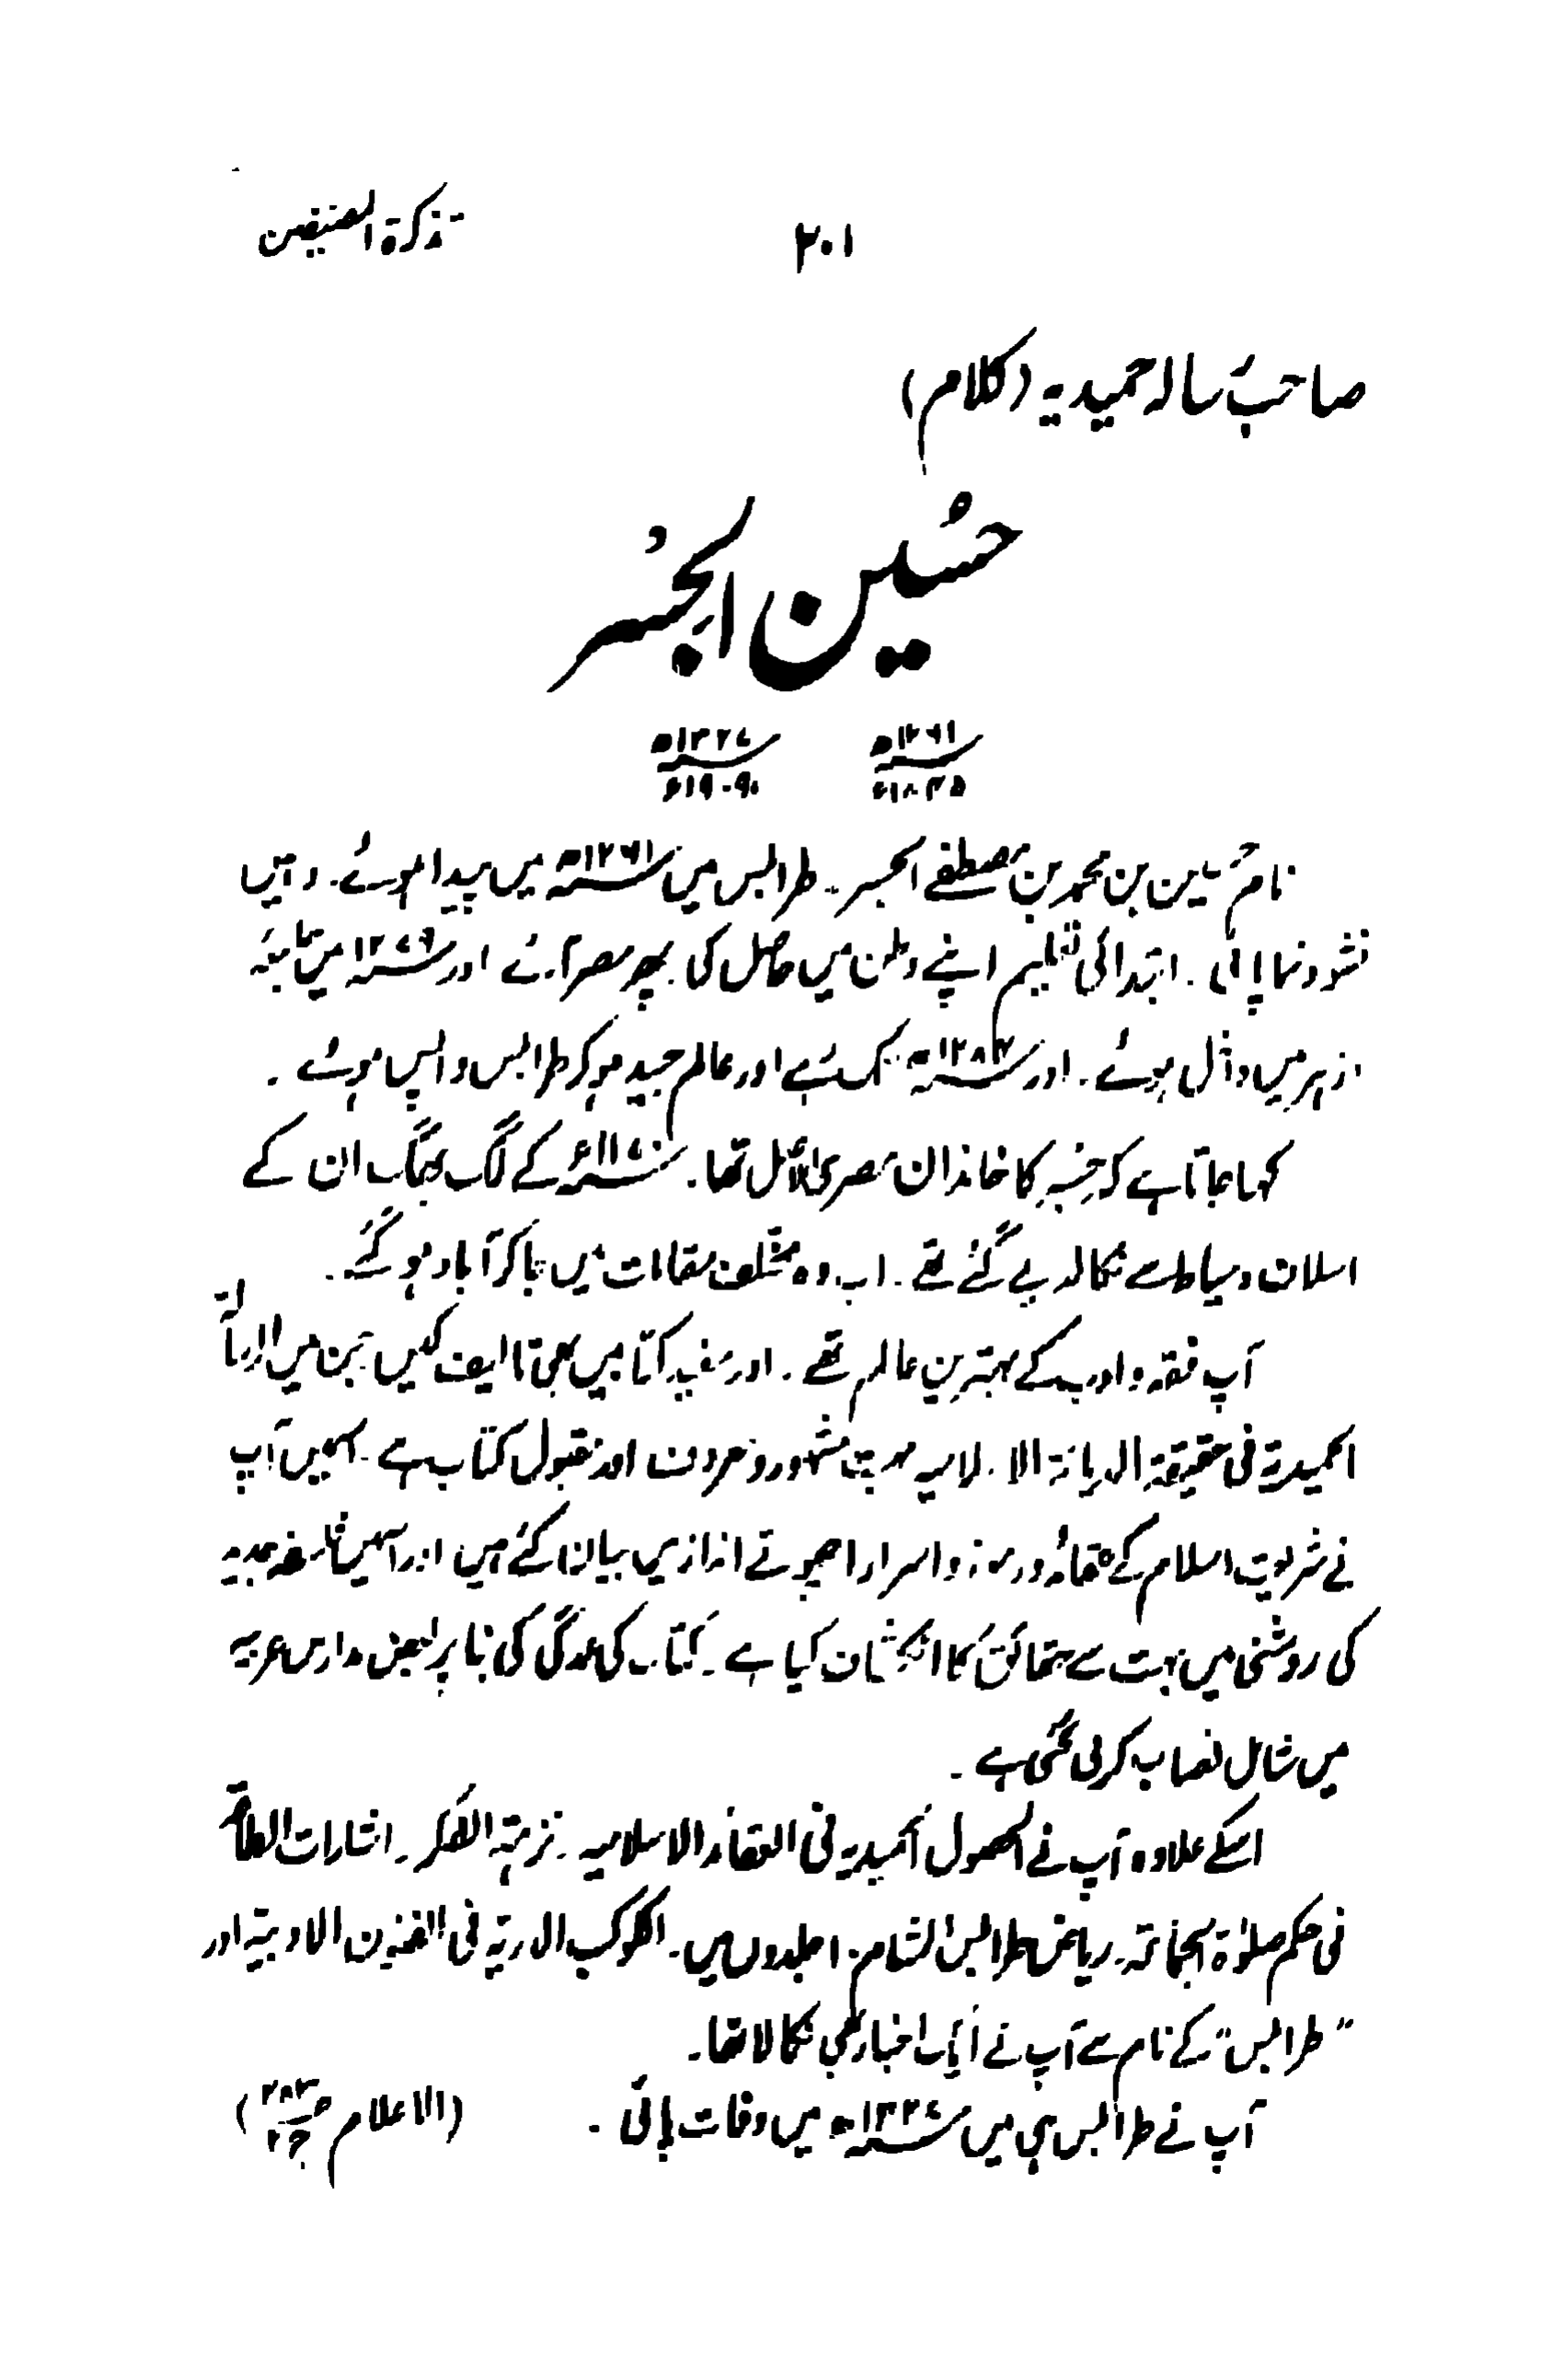 تذکرۃ المصنفین
۲۰۱
صاحب رسالہ حمیدیہ (کلام)
حُسین الجسُر
۱۲۶۱ھ ۱۳۲۷ھ
۱۸۴۵ء ۱۹۰۹ء
نام حُسین بن محمد بن مصطفےٰ الجسر۔ طرابلس میں ۱۲۶۱ھ میں پیدا ہوئے۔ وہیں
نشوونما پائی۔ ابتدائی تعلیم اپنے وطن میں حاصل کی پھر مصر آئے اور ۱۲۷۹ میں جامعہ
ازہر میں داخل ہوئے۔ اور ۱۲۸۴ھ تک رہے اور عالم جید ہوکر طرابلس واپس ہوئے۔
کہا جاتا ہے کہ جسر کا خاندان مصری الاصل تھا۔ ۱۱۷۰ء کے لگ بھگ ان کے
اسلاف دمیاط سے نکالدیے گئے تھے۔ اب وہ مختلف مقامات میں جاکر آباد ہوگئے۔
آپ فقہ و ادب کے بہترین عالم تھے۔ اور مفید کتابیں بھی تالیف کیں جن میں الرسالۃ
الحمیدیۃ فی حقیقۃ الدیانۃ الاسلامیہ بہت مشہور و معروف اور مقبول کتاب ہے۔ اسمیں آپ
نے شریعت اسلام کے عقائد و رموز و اسرار اچھوتے انداز میں بیان کئے ہیں اور اسمیں فلسفہ جدیدہ
کی روشنی میں بہت سے حقائق کا انکشاف کیا ہے۔ کتاب کی عمدگی کی بنا پر بعض مدارس عربیہ
میں شامل نصاب کرلی گئی ہے۔
اسکے علاوہ آپ نے الحصول الحمیدیہ فی العقائد الاسلامیہ۔ نزہتہ الفکر۔ اشارات الطاعۃ
فی حکم صلوٰۃ الجماعۃ۔ ریاض طرابلس الشام ۱۰ جلدوں میں۔ الکوکب الدریۃ فی الفنون الادبیۃ اور
"طرابلس" کے نام سے آپ نے ایک اخبار بھی نکالا تھا۔
آپ نے طرابلس ہی میں ۱۳۲۷ھ میں وفات پائی۔ (الاعلام ص ۲۸۳ ج ۲)